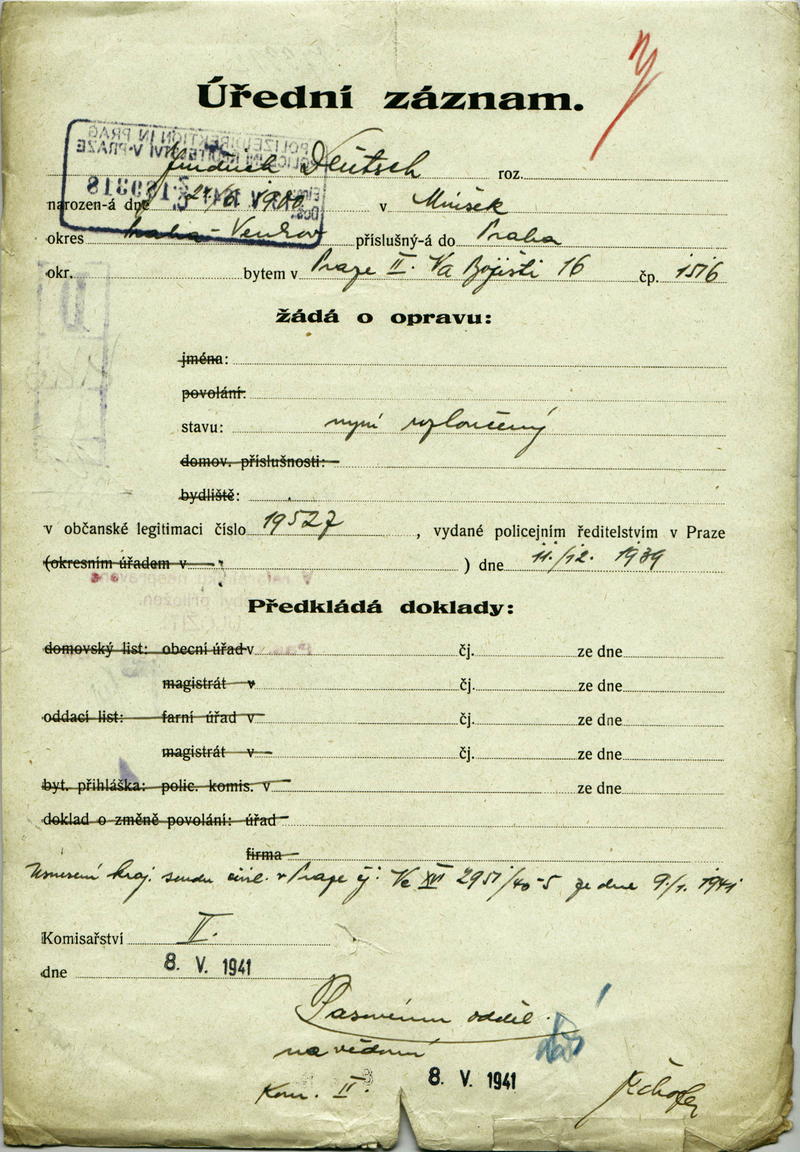 Úřední záznam.
Jindřich Deutsch roz.
narozen-á dne 1900 v Mníšek
okres Praha-Venkov příslušný-á do Praha
okr. bytem v Praze II. Na Bojišti 16 čp. 1516
žádá o opravu:
jména:
povolání:
stavu: nyní rozloučený
domov. příslušnosti:
bydliště:
v občanské legitimaci číslo 19527, vydané policejním ředitelstvím v Praze
(okresním úřadem v ) dne 11./12. 1939
Předkládá doklady:
domovský list: obecní úřad v čj. ze dne
magistrát v čj. ze dne
oddací list: farní úřad v čj. ze dne
magistrát v čj. ze dne
byt. přihláška: polic. komis. v ze dne
doklad o změně povolání: úřad
firma
Usnesení kraj. soudu civil. v Praze čj. XVI 2951/40-5 ze dne 9./1. 1941
Komisařství II.
dne 8. V. 1941
Pasovému odděl.
na vědomí
Kom. II. 8. V. 1941